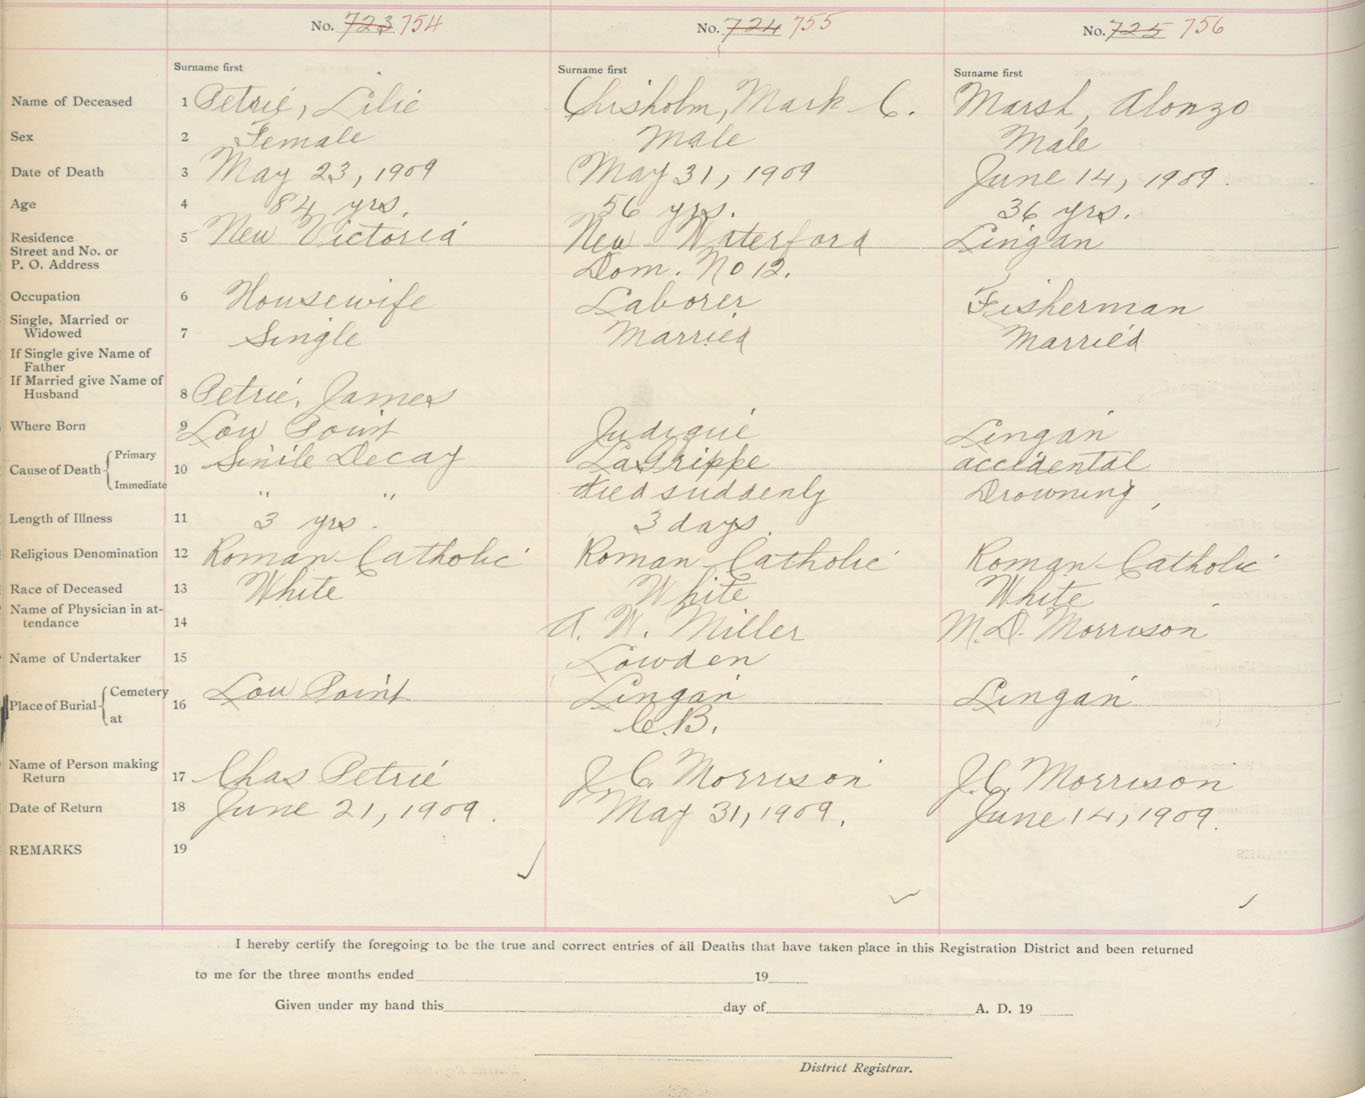 No. 723 754 No. 724 755 No. 725 756
Surname first Surname first Surname first
Name of Deceased 1 Petrie, Lilie Chisholm, Mark C. Marsh, Alonzo
Sex 2 Female Male Male
Date of Death 3 May 23, 1909 May 31, 1909 June 14, 1909.
Age 4 84 yrs. 56 yrs. 36 yrs.
Residence 5 New Victoria New Waterford Lingan
Street and No. or
P. O. Address Dom. No 12.
Occupation 6 Housewife Laborer Fisherman
Single, Married or
Widowed 7 Single Married Married
If Single give Name of
Father
If Married give Name of
Husband 8 Petrie, James
Where Born 9 Low Point Judique Lingan
Cause of Death Primary 10 Sinile Decay LaGrippe accidental
Immediate " " died suddenly Drowning,
Length of Illness 11 3 yrs. 3 days.
Religious Denomination 12 Roman Catholic Roman Catholic Roman Catholic
Race of Deceased 13 White White White
Name of Physician in at-
tendance 14 A. W. Miller M.D. Morrison
Name of Undertaker 15 Lowden
Place of Burial Cemetery 16 Low Point Lingan Lingan
at C.B.
Name of Person making
Return 17 Chas Petrie J.C. Morrison J.C. Morrison
Date of Return 18 June 21, 1909. May 31, 1909. June 14, 1909.
REMARKS 19
I hereby certify the foregoing to be the true and correct entries of all Deaths that have taken place in this Registration District and been returned
to me for the three months ended 19
Given under my hand this day of A. D. 19
District Registrar.